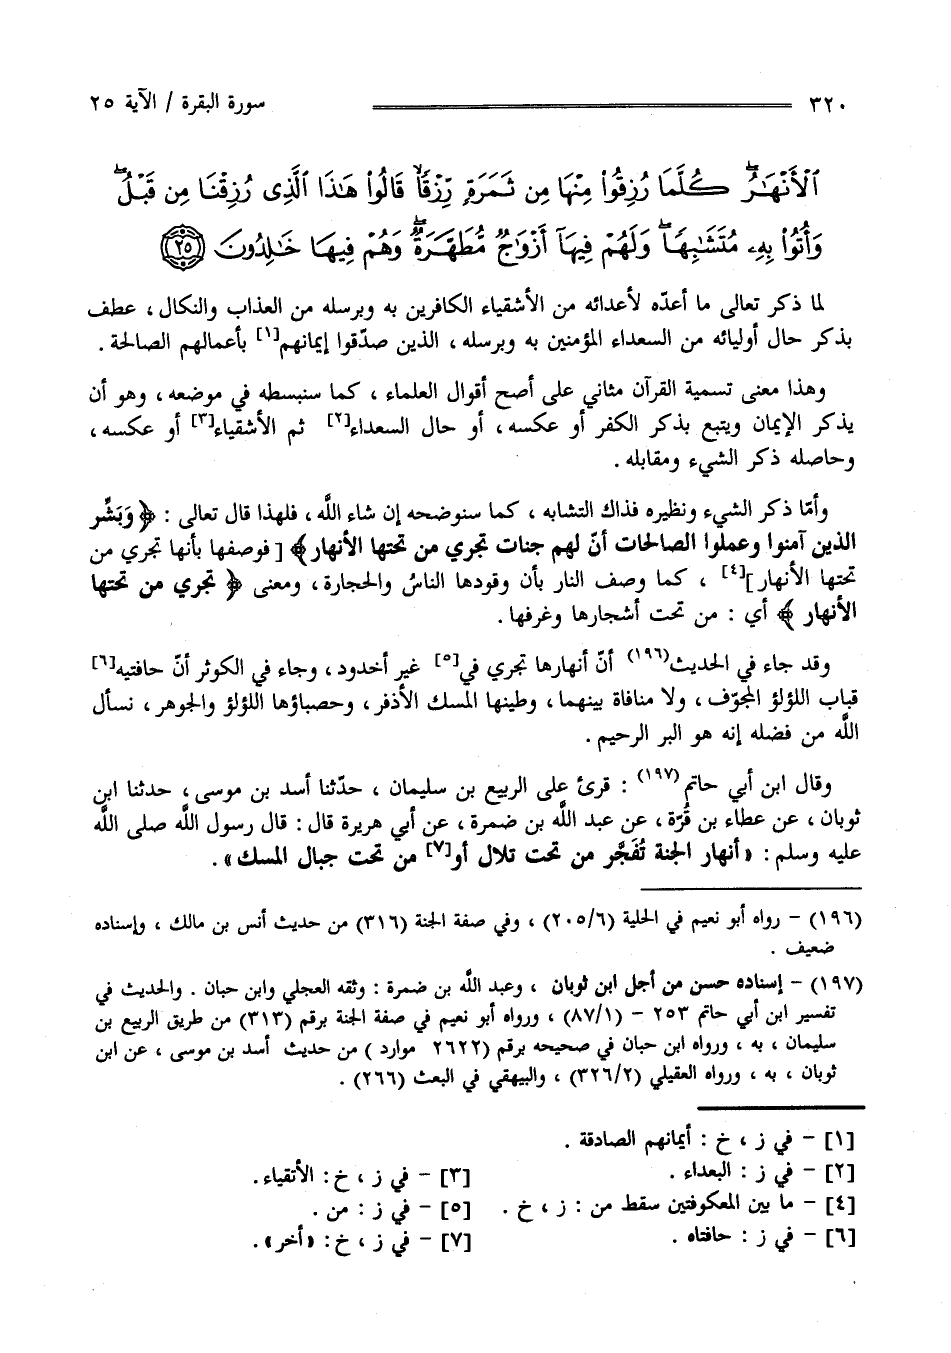 ٣٢٠ سورة البقرة / الآية ٢٥
ٱلْأَنْهَٰرُ ۖ كُلَّمَا رُزِقُوا۟ مِنْهَا مِن ثَمَرَةٍ رِّزْقًا ۙ قَالُوا۟ هَٰذَا ٱلَّذِى رُزِقْنَا مِن قَبْلُ ۖ
وَأُتُوا۟ بِهِۦ مُتَشَٰبِهًا ۖ وَلَهُمْ فِيهَآ أَزْوَٰجٌ مُّطَهَّرَةٌ ۖ وَهُمْ فِيهَا خَٰلِدُونَ ٢٥
لما ذكر تعالى ما أعدّه لأعدائه من الأشقياء الكافرين به وبرسله من العذاب والنكال ، عطف
بذكر حال أوليائه من السعداء المؤمنين به وبرسله ، الذين صدّقوا إيمانهم[١] بأعمالهم الصالحة .
وهذا معنى تسمية القرآن مثاني على أصح أقوال العلماء ، كما سنبسطه في موضعه ، وهو أن
يذكر الإيمان ويتبع بذكر الكفر أو عكسه ، أو حال السعداء[٢] ثم الأشقياء[٣] أو عكسه ،
وحاصله ذكر الشيء ومقابله .
وأمّا ذكر الشيء ونظيره فذاك التشابه ، كما سنوضحه إن شاء اللَّه ، فلهذا قال تعالى : ﴿ وَبَشِّر
الذين آمنوا وعملوا الصالحات أنّ لهم جنات تجري من تحتها الأنهار ﴾ [ فوصفها بأنها تجري من
تحتها الأنهار ][٤] ، كما وصف النار بأن وقودها الناسُ والحجارة ، ومعنى ﴿ تجري من تحتها
الأنهار ﴾ أي : من تحت أشجارها وغرفها .
وقد جاء في الحديث(١٩٦) أنّ أنهارها تجري في[٥] غير أخدود ، وجاء في الكوثر أنّ حافتيه[٦]
قباب اللؤلؤ المجوّف ، ولا منافاة بينهما ، وطينها المسك الأذفر ، وحصباؤها اللؤلؤ والجوهر ، نسأل
اللَّه من فضله إنه هو البر الرحيم .
وقال ابن أبي حاتم(١٩٧) : قرئ على الربيع بن سليمان ، حدّثنا أسد بن موسى ، حدثنا ابن
ثوبان ، عن عطاء بن قُرّة ، عن عبد اللَّه بن ضمرة ، عن أبي هريرة قال : قال رسول اللَّه صلى اللَّه
عليه وسلم : « أنهار الجنة تُفَجَّر من تحت تلال أو[٧] من تحت جبال المسك » .
(١٩٦) - رواه أبو نعيم في الحلية (٢٠٥/٦) ، وفي صفة الجنة (٣١٦) من حديث أنس بن مالك ، وإسناده
ضعيف .
(١٩٧) - إسناده حسن من أجل ابن ثوبان ، وعبد اللَّه بن ضمرة : وثقه العجلي وابن حبان . والحديث في
تفسير ابن أبي حاتم ٢٥٣ - (٨٧/١) ، ورواه أبو نعيم في صفة الجنة برقم (٣١٣) من طريق الربيع بن
سليمان ، به ، ورواه ابن حبان في صحيحه برقم (٢٦٢٢ موارد ) من حديث أسد بن موسى ، عن ابن
ثوبان ، به ، ورواه العقيلي (٣٢٦/٢) ، والبيهقي في البعث (٢٦٦) .
[١] - في ز ، خ : أيمانهم الصادقة .
[٢] - في ز : البعداء . [٣] - في ز ، خ : الأتقياء .
[٤] - ما بين المعكوفتين سقط من : ز ، خ . [٥] - في ز : من .
[٦] - في ز : حافتاه . [٧] - في ز ، خ : «أخر» .